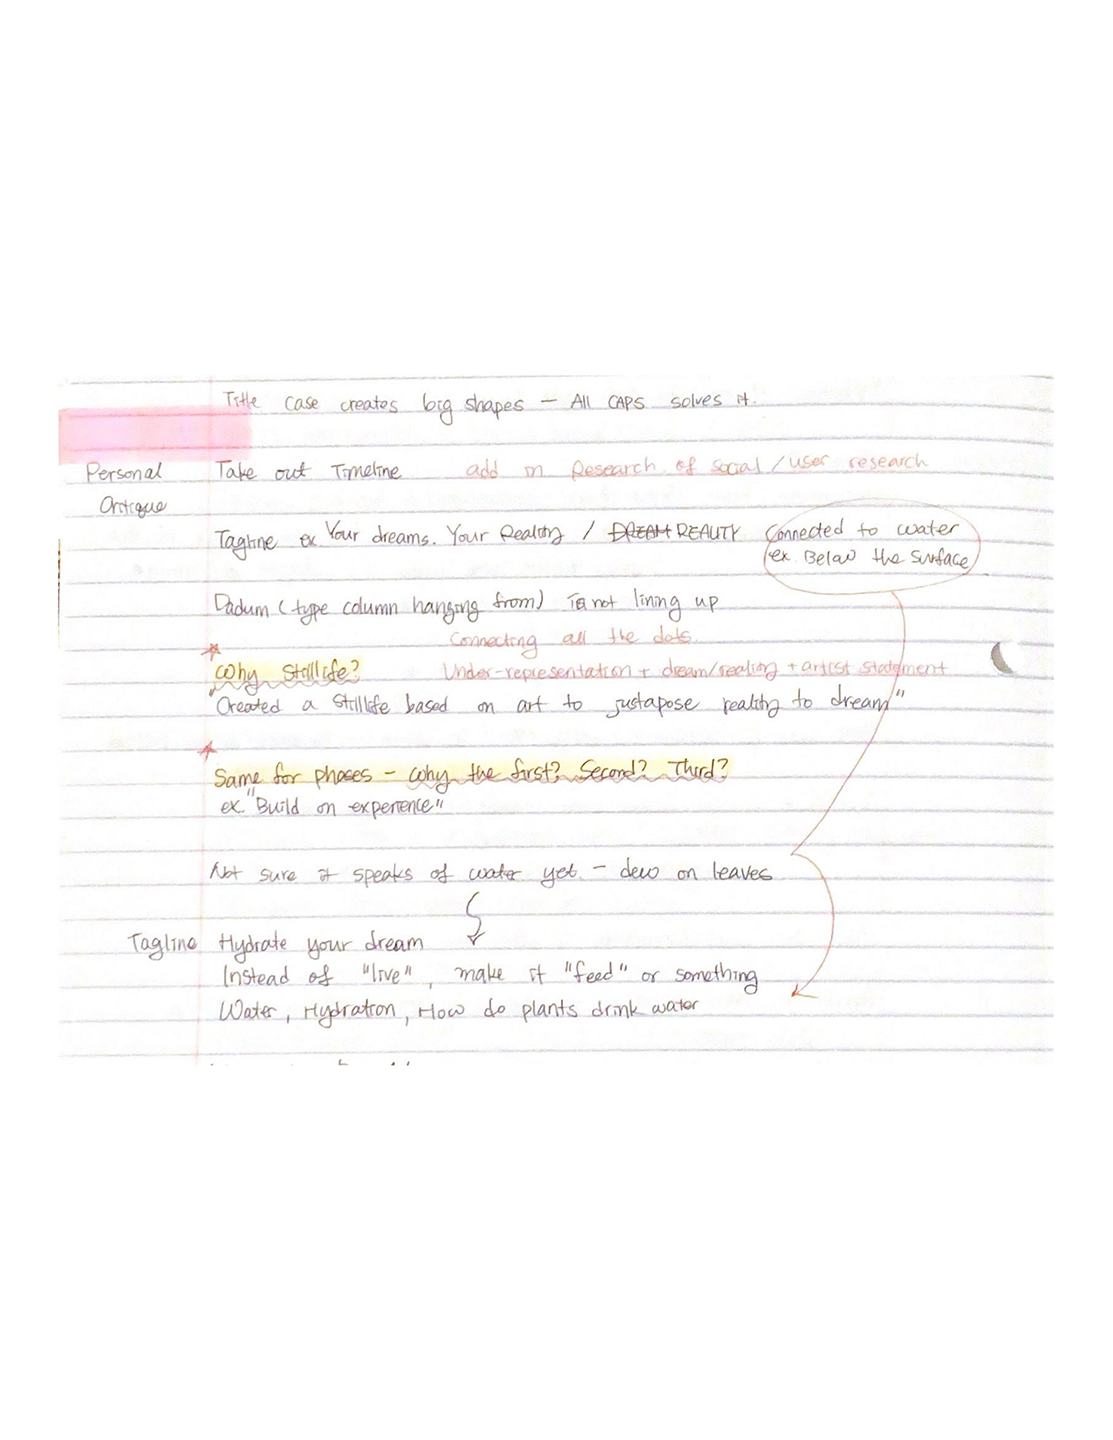 Title case creates big shapes – All CAPS solves it.
Personal Critique
Take out Timeline add in Research of social / user research
Tagline ex Your dreams. Your Reality / DREAM REALITY Connected to water
ex. Below the Surface
Dadum (type column hanging from) is not lining up
Connecting all the dots.
Why Stilllife? Under-representation + dream/reality + artist statement
"Created a Stilllife based on art to justapose reality to dream"
Same for phases – Why the first? Second? Third?
ex. "Build on experience"
Not sure it speaks of water yet. – dew on leaves
Tagline Hydrate your dream
Instead of "live", make it "feed" or something
Water, Hydration, How do plants drink water